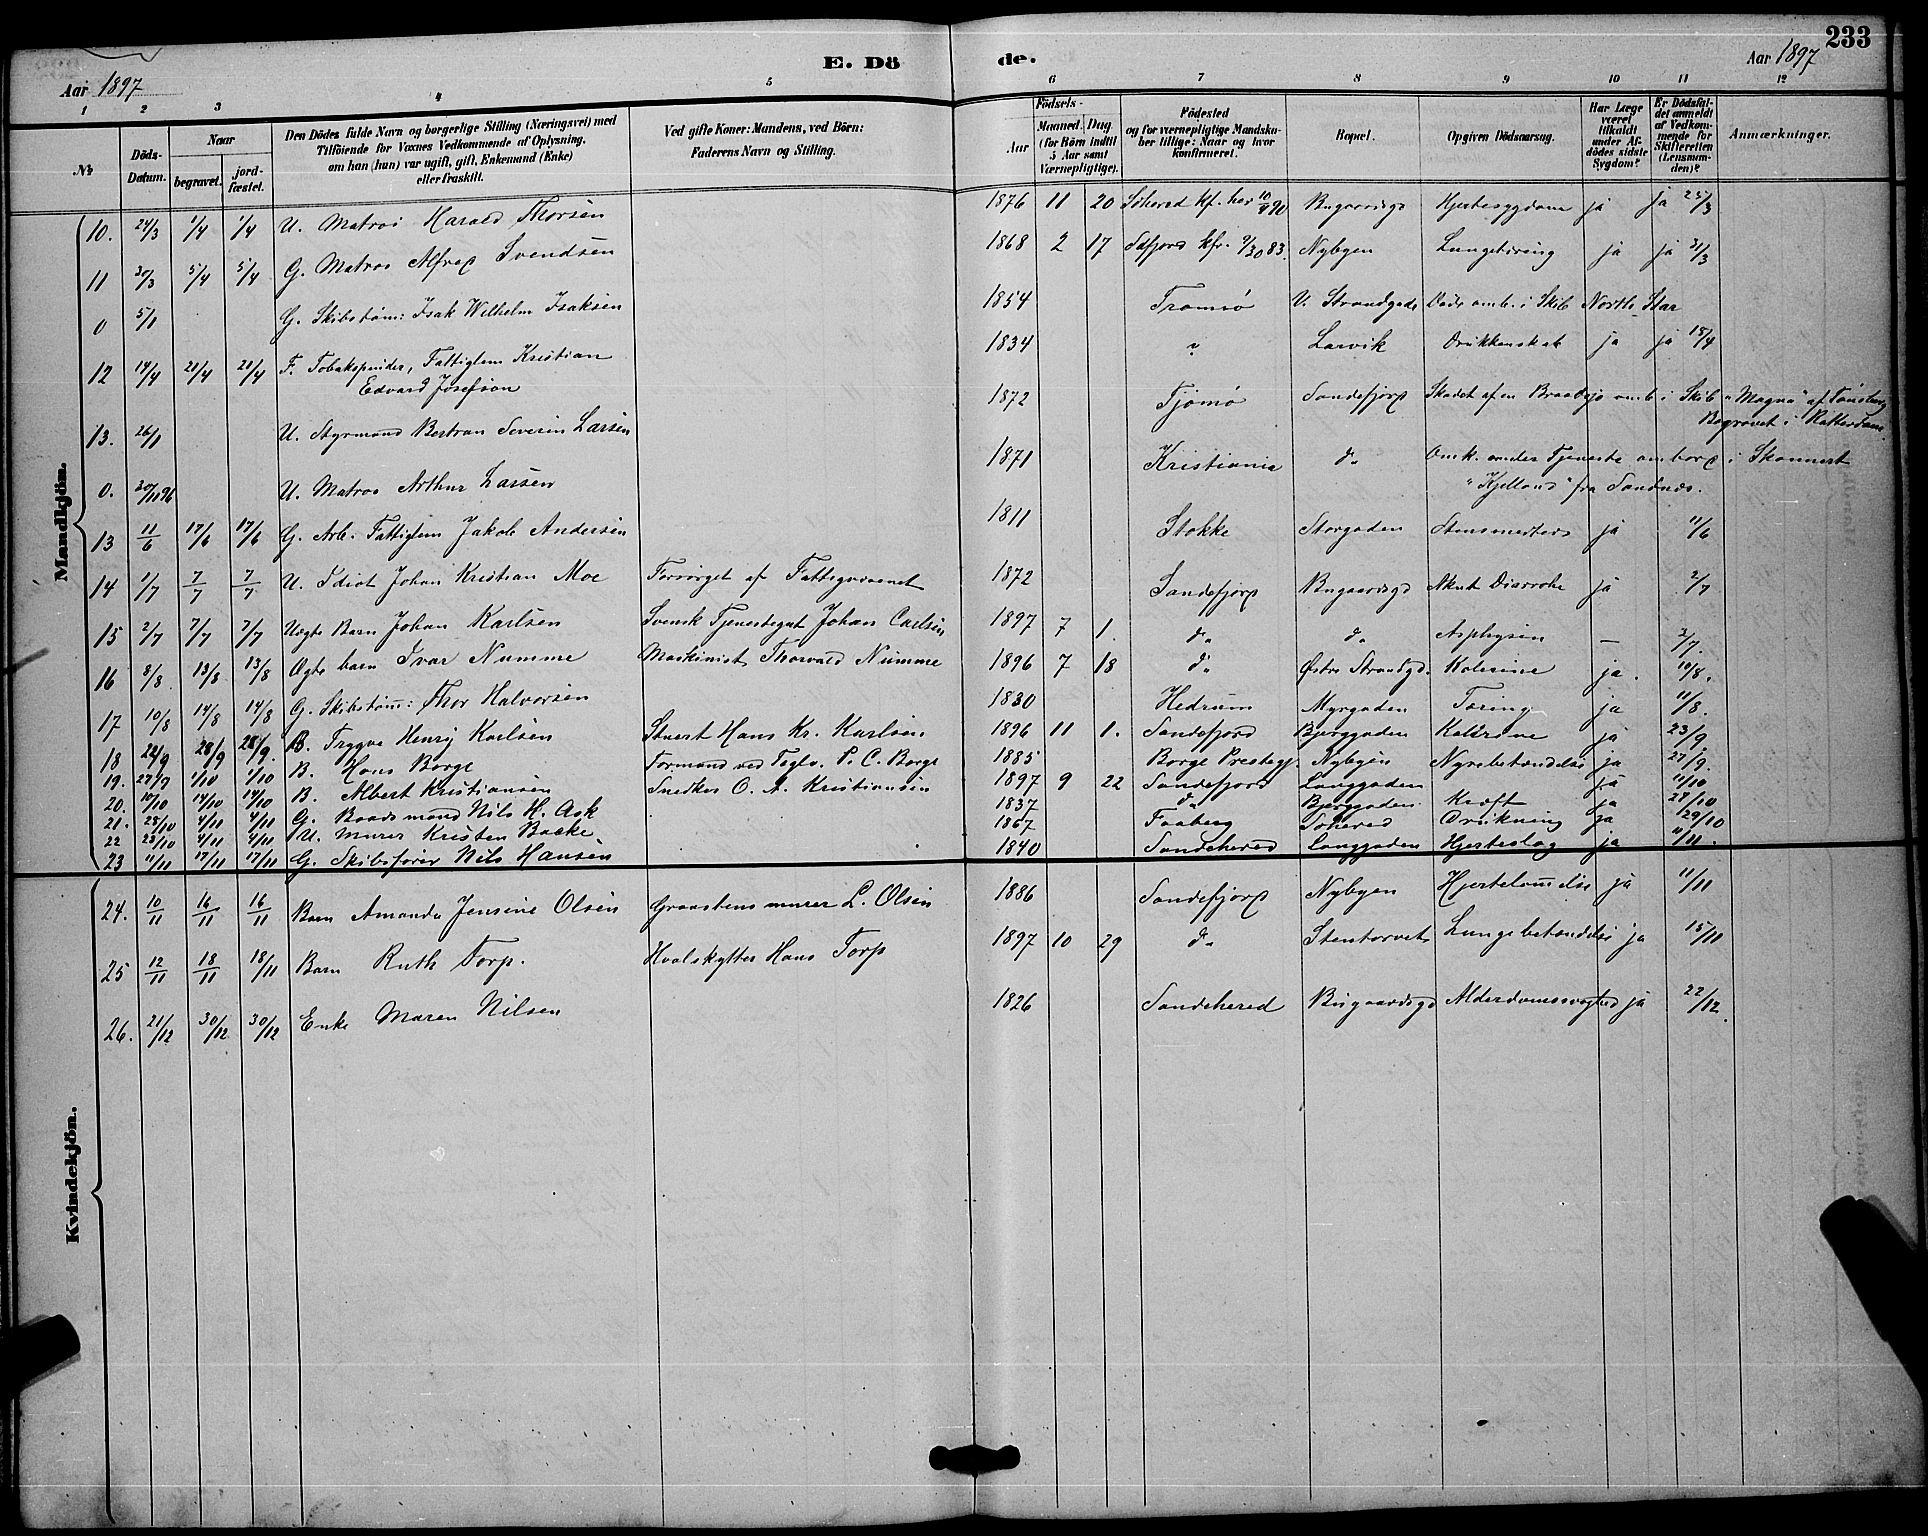 233
E. Dö de.
Aar 1897
Aar 1897
1 2 3 4 5 6 7 8 9 10 11 12
No
Döds-Datum.
Naar
begravet.
jordfæstet.
Den Dödes fulde Navn og borgerlige Stilling (Næringsvei) med
Tilföiende for Voxnes Vedkommende af Oplysning,
om han (hun) var ugift, gift, Enkemand (Enke)
eller fraskilt.
Ved gifte Koner: Mandens, ved Börn:
Faderens Navn og Stilling.
Födsels-
Aar
Maaned. Dag
(for Börn indtil
5 Aar samt
Værnepligtige).
Födested
og for værnepligtige Mandskaber tillige: Naar og hvor
konfirmeret.
Bopæl.
Opgiven Dödsaarsag.
Har Læge
været
tilkaldt
under Afdödes sidste
Sygdom?
Er Dödsfaldet anmeldt
af Vedkommende for
Skifteretten
(Lensmanden)?
Anmærkninger.
Mandkjön.
10. 24/3 1/4 1/4 U. Matros Harald Thorsen 1876 11 20 Söhered kf. her 10/90 Bugaardsgd Hjertesygdom ja ja 25/3
11 30/3 5/4 5/4 G. Matros Alfred Svendsen 1868 2 17 Sdfjord kfr. 9/30 83. Nybyen Lungetæring ja ja 31/3
0 5/1 G. Skibstöm: Isak Wilhelm Isaksen 1854 Tromsö V. Strandgade Döde omb. i Skib North Star
12 14/4 20/4 20/4 F. Tobakspinder, Fattiglem Kristian
Edvard Josefson 1834 " Larvik Drukkenskab ja ja 15/4
13. 26/1 U. Styrmand Bertran Severin Larsen 1872 Tjömö Sandefjord Skadet af en Braadsjö omb. i Skib "Magna" af Tönsberg
Begravet i Rotterdam.
0. 20/11 96 U. Matros Arthur Larsen 1871 Kristiania do Omk. under Tjeneste ombord i Skonnert
"Kjelland" fra Sandnæs.
13 11/6 17/6 17/6 G. Arb. Fattiglem Jakob Andersen 1811 Stokke Storgaden Stensmerter ja 11/6
14 1/7 7/7 7/7 U. Idiot Johan Kristian Moe Forsörget af Fattigvæsenet 1872 Sandefjord Bugaardsgd Akut Diarrohe ja 2/7
15 2/7 7/7 7/7 Uægte Barn Johan Karlsen Svensk Tjenestegut Johan Carlsen 1897 7 1. do do Asphyxien — 3/7.
16 8/8 13/8 13/8 Ægte barn Ivar Numme Maskinist Thorvald Numme 1896 7 18 do Østre Strandgd. Kolerine ja. 10/8.
17 10/8 14/8 14/8 G. Skibstöm: Thor Halvorsen 1830 Hedrum Myrgaden Tæring ja 11/8.
18 22/9 28/9 28/9. B. Trygve Henry Karlsen Stuert Hans Kr. Karlsen 1896 11 1. Sandefjord Bjerggaden Kolerine ja 23/9
19. 27/9 1/10 1/10 B. Hans Borge Formand ved Teglv. P. C. Borge 1885 Borge Prestegj. Nybyen Nyrebetændelse ja 27/9.
20. 10/10 14/10 14/10 B. Albert Kristiansen Snedker O. A. Kristiansen 1897 9 22 Sandefjord Langgaden ja 11/10
21. 28/10 4/11 4/11 G. Baadsmand Nils H. Ask 1837 do Bjerggaden Kræft ja 28/10
22 23/10 4/11 4/11 U. Murer Kristen Bakke 1867 Faaberg Sohered Drukning ja 29/10
23 11/11 17/11 17/11 G. Skibsförer Nils Hansen 1840 Sandehered Langgaden Hjerteslag ja 11/11.
Kvindekjön.
24. 10/11 16/11 16/11 Barn Amanda Jensine Olsen Graastensmurer L. Olsen 1886 Sandefjord Nybyen Hjertelammelse ja 11/11
25 12/11 18/11 18/11 Barn Ruth Torp. Hvalskytter Hans Torp 1897 10 29 do Stentorvet Lungebetændelse ja 15/11
26. 21/12 30/12 30/12 Enke Maren Nilsen 1826 Sandehered Bugaardsgd Alderdomssvaghed ja 22/12.